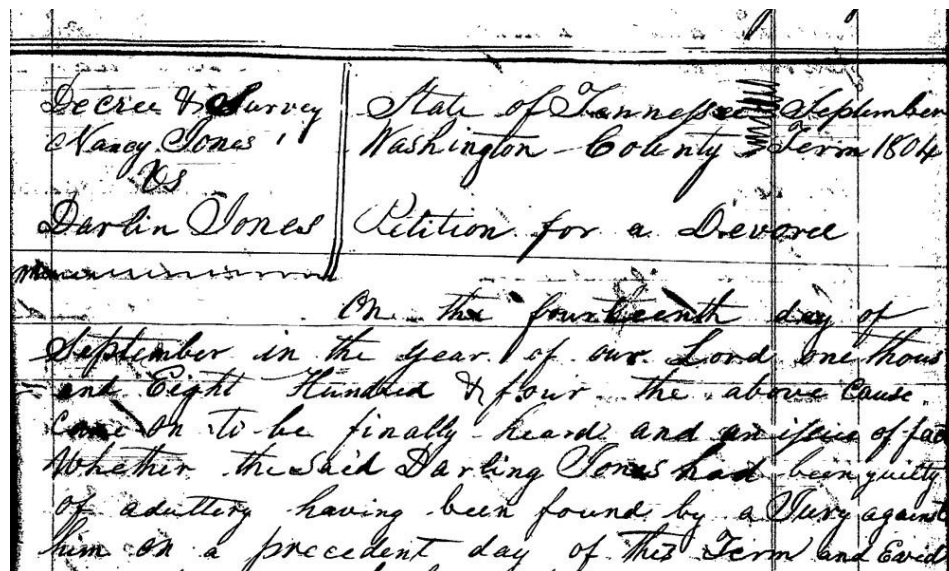 Decree & Survey
Nancy Jones
Vs
Darlin Jones
State of Tennessee September
Washington County Term 1804
Petition for a Devorce
On the fourteenth day of
September in the year of our Lord one thous
and Eight Hundred & four the above Cause
Came on to be finally heard and an issue of fac
Whether the Said Darling Jones had been guilty
of adultery having been found by a Jury against
him on a precedent day of this Term and Evid